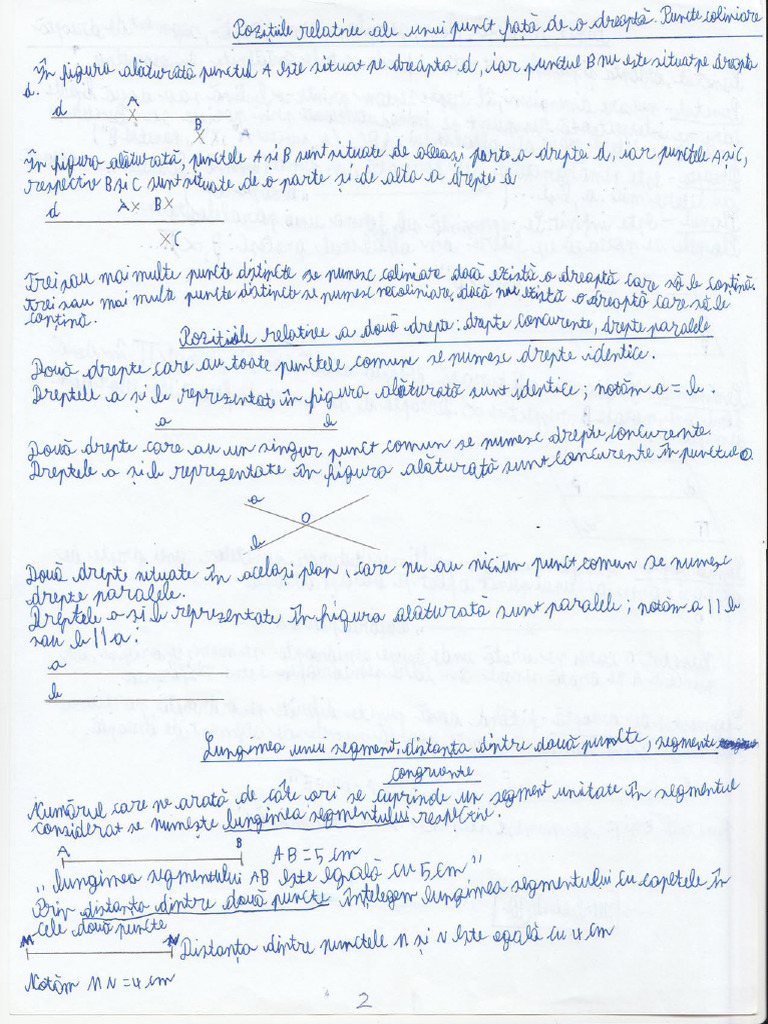 Pozițiile relative ale unui punct față de o dreaptă. Puncte coliniare
În figura alăturată punctul A este situat pe dreapta d, iar punctul B nu este situat pe dreapta
d.
d A
B
În figura alăturată, punctele A și B sunt situate de aceeași parte a dreptei d, iar punctele A și C,
respectiv B și C sunt situate de o parte și de alta a dreptei d
d A B
C
Trei sau mai multe puncte distincte se numesc coliniare dacă există o dreaptă care să le conțină.
Trei sau mai multe puncte distincte se numesc necoliniare, dacă nu există o dreaptă care să le
conțină.
Pozițiile relative a două drepte: drepte concurente, drepte paralele
Două drepte care au toate punctele comune se numesc drepte identice.
Dreptele a și b reprezentate în figura alăturată sunt identice; notăm a = b.
a b
Două drepte care au un singur punct comun se numesc drepte concurente.
Dreptele a și b reprezentate în figura alăturată sunt concurente în punctul O.
a
O
b
Două drepte situate în același plan care nu au niciun punct comun se numesc
drepte paralele.
Dreptele a și b reprezentate în figura alăturată sunt paralele; notăm a || b
sau b || a:
a
b
Lungimea unui segment; distanța dintre două puncte, segmente
congruente
Numărul care ne arată de câte ori se cuprinde un segment unitate în segmentul
considerat se numește lungimea segmentului respectiv.
A B AB = 5 cm
„lungimea segmentului AB este egală cu 5 cm"
Prin distanța dintre două puncte înțelegem lungimea segmentului cu capetele în
cele două puncte
M N Distanța dintre punctele M și N este egală cu 4 cm
Notăm MN = 4 cm
2